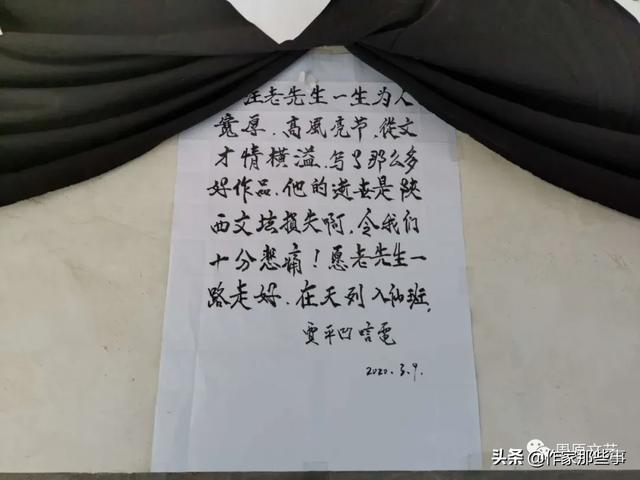 汪老先生一生为人
宽厚，高風亮节，從文
才情横溢，写了那么多
好作品，他的逝去是陕
西文坛损失啊，令我们
十分悲痛！愿老先生一
路走好，在天列入仙班。
贾平凹唁電
2020.3.9.
周原文艺
头条 @作家那些事